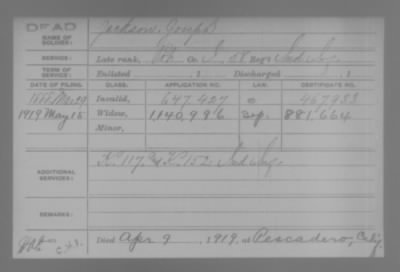 DEAD
NAME OF SOLDIER: Jackson, Joseph
SERVICE: Late rank, Pvt. Co. I, 58 Reg't Ind. Inf.
TERM OF SERVICE: Enlisted , 1 Discharged , 1
DATE OF FILING. CLASS. APPLICATION NO. LAW. CERTIFICATE NO.
Invalid, 647.427
1919 May 15 Widow, 1,140,986 881,664
Minor,
ADDITIONAL SERVICES: K. 117. & K. 152. Ind. Inf.
REMARKS:
Died Apr 9, 1919, at Pescadero, Calif